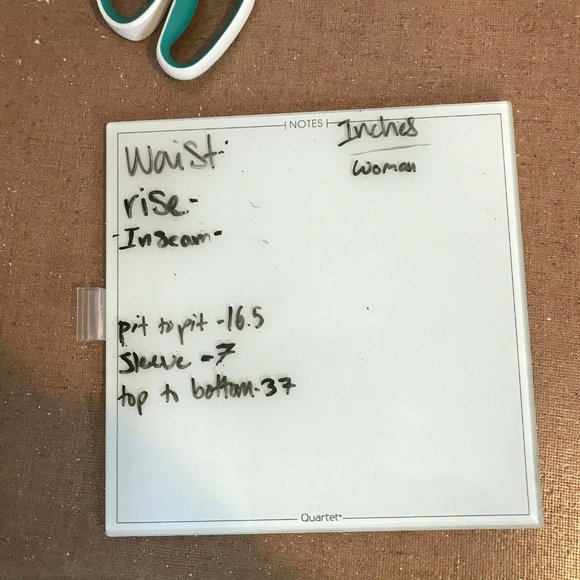 NOTES
Inches
Woman
Waist-
rise-
-Inseam-
pit to pit -16.5
Sleeve -7
top to bottom-37
Quartet